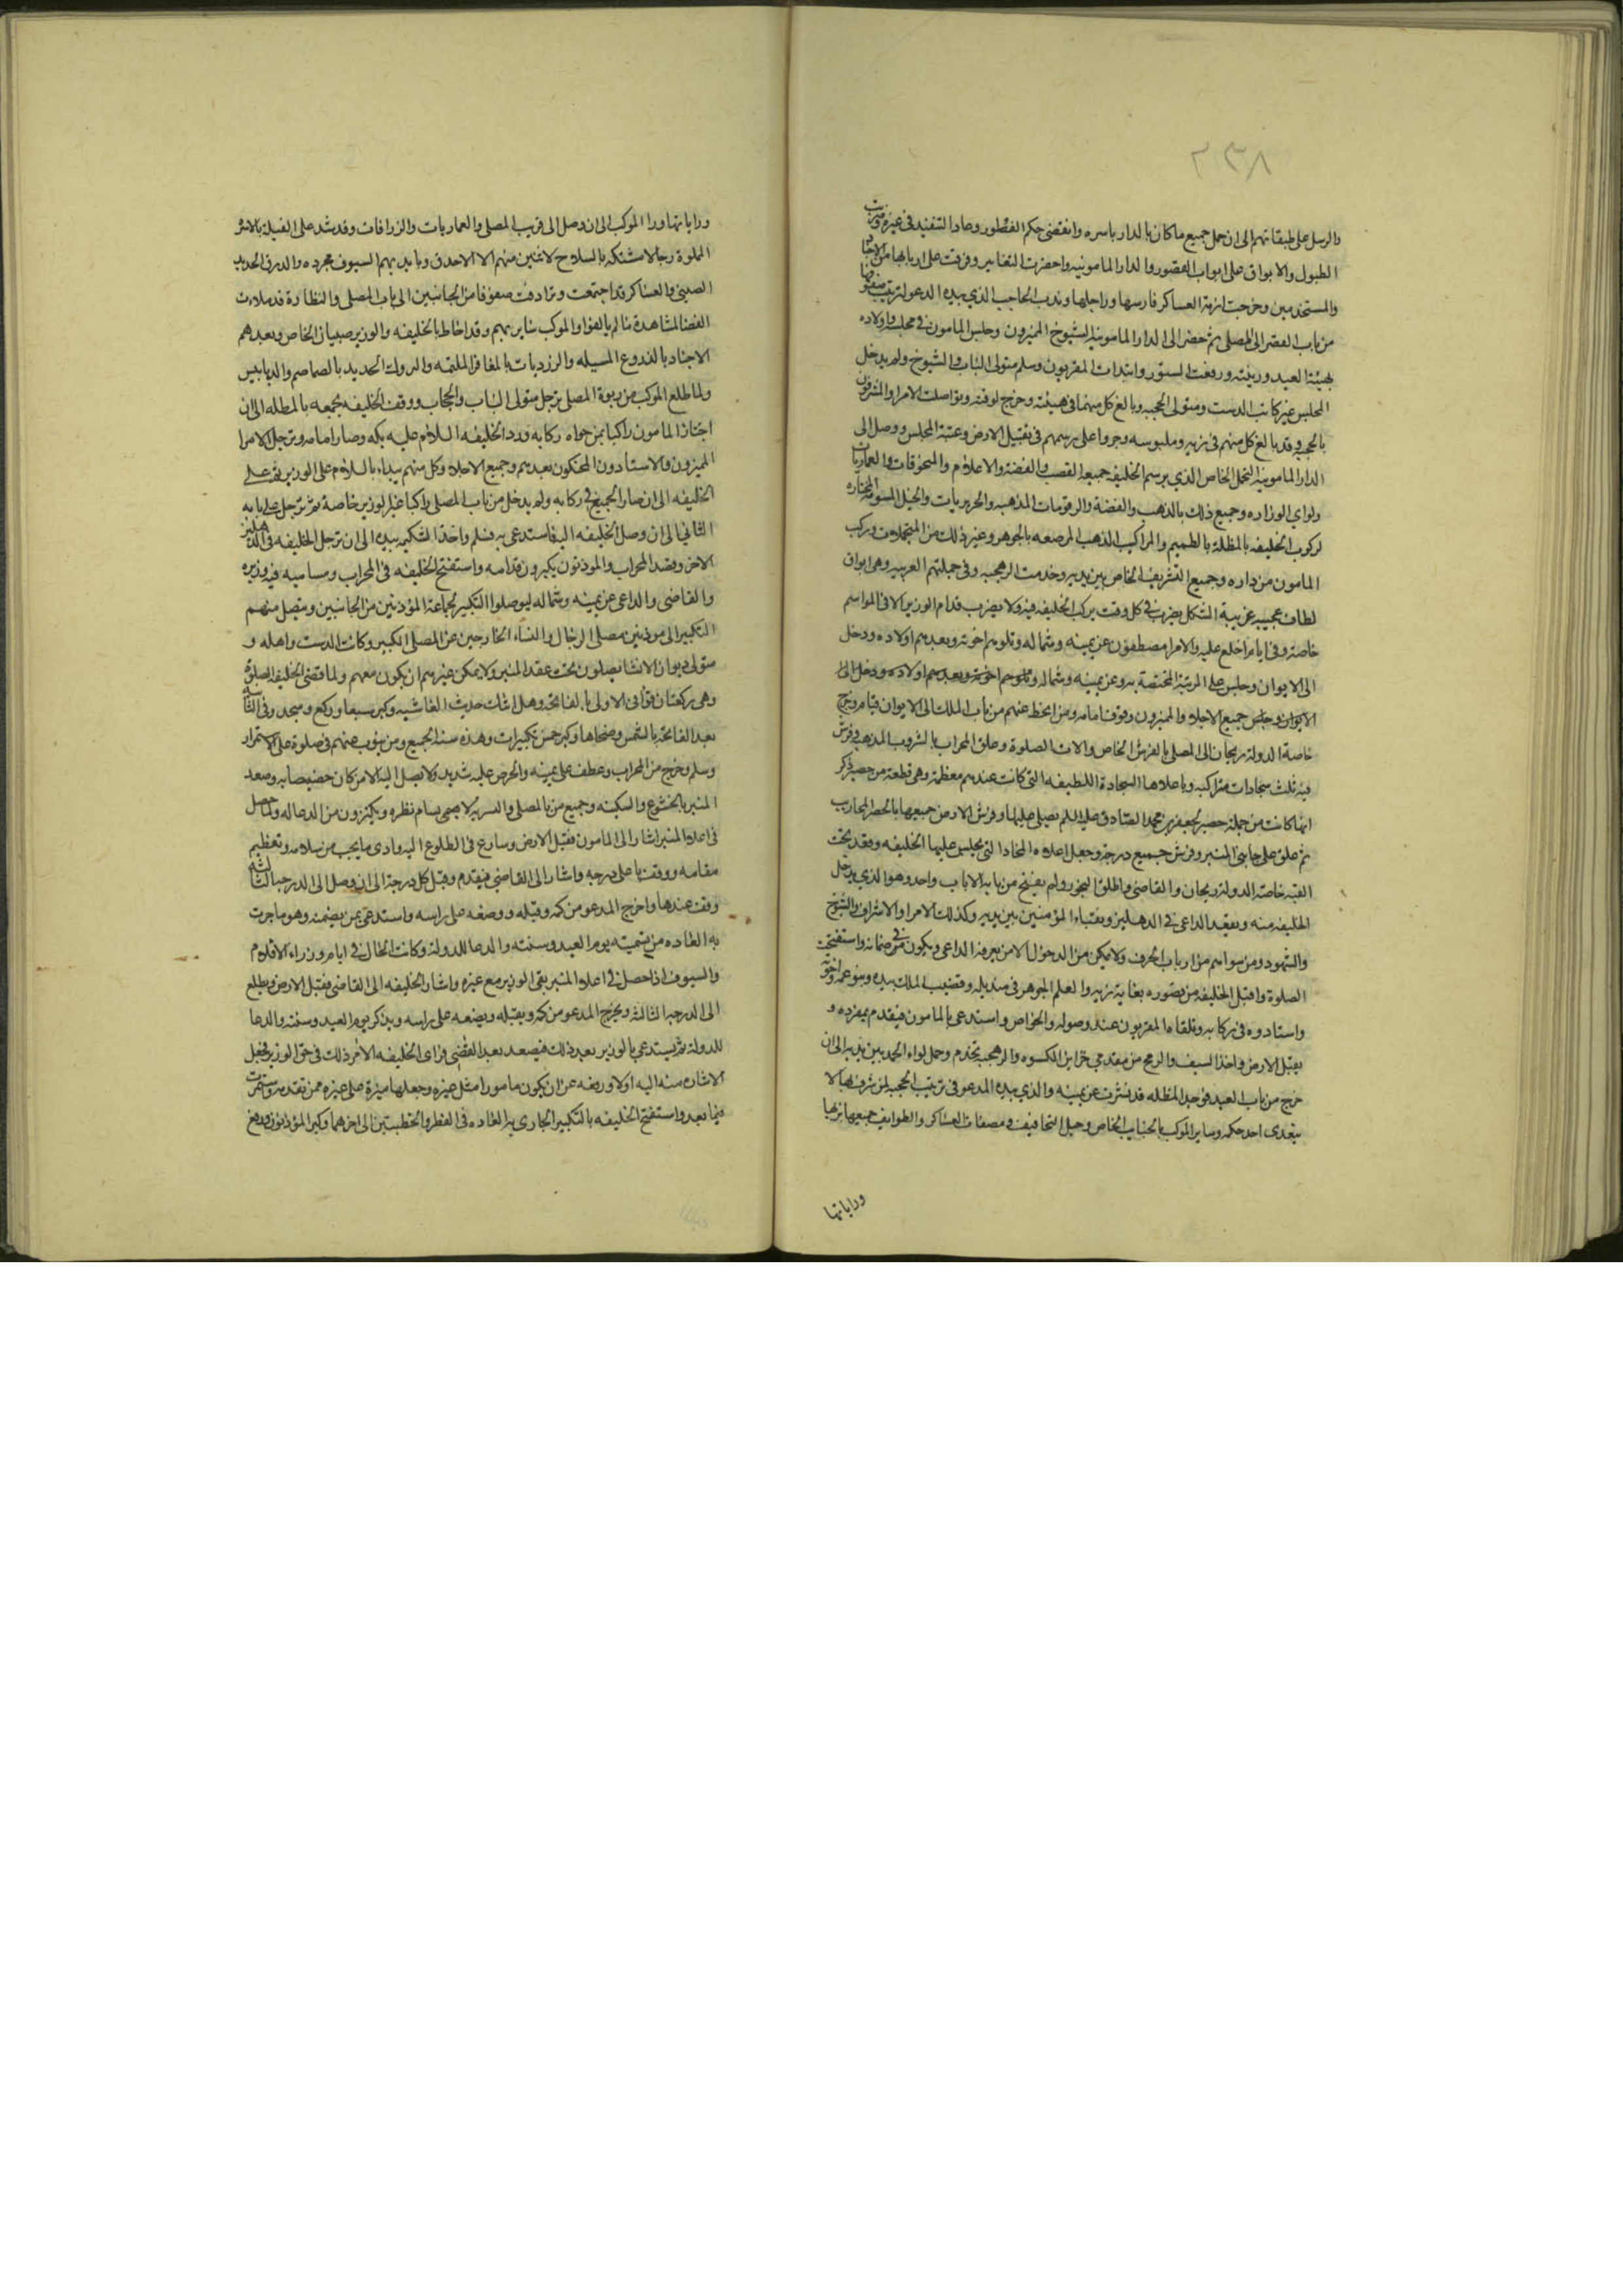 ٢٣٨
والرسل على طبقاتهم الى ان حمل جميع ماكان بالدار باسره وانقضى حكم الفطور وعاد التنفيذ فى غيره وضربت
الطبول والابواق على ابواب القصور والدار المامونيه واحضرت التغابير وفرقت على اربابها من الاجناد
والمستخدمين وخرجت ازمة العساكر فارسها وراجلها وندب الحاجب الذي بيده الدعو لترتيب صفوفها
من باب القصر الى المصلى ثم حضر الى الدار المامونيه الشيوخ المميزون وجلس المامون فى مجلسه واولاده
بهيئة العيد وزينته ورفعت الستور وابتدات المقربون وسلم متولى الباب والشيوخ ولم يدخل
المجلس غير كاتب الدست ومتولى الحجبه وبالغ كل منهما فى هيئته وخرج لوقته وتواصلت الامرا والمشرفون
بالحجر وقد بالغ كل منهم فى زيه وملبوسه وجروا على رسمهم فى تقبيل الارض وعتبة المجلس ووصل الى
الدار المامونية التجمل الخاص الذي برسم الخليفه جميعه القصب الفضة والاعلام والمنجوقات والعماريات
ولواي الوزاره وجميع ذلك بالذهب والفضة والرقومات المذهبه والحريريات والخيل المسومة المختاره
لركوب الخليفه بالمظلة بالطميم والمراكيب الذهب المرصعه بالجوهر وغير ذلك من التجملات وركب
المامون من داره وجميع التشريف الخاص بين يديه وخدمت الرهجيه وفى جملتهم الغربيه وهى ابواق
لطاف عجيبه غريبة الشكل يضرب فى كل وقت يركب الخليفه فيه ولا يضرب قدام الوزير الا فى المواسم
خاصة وفى ايام الخلع عليه والامرا مصطفون عن يمينه وشماله وتلوهم اخوته وبعدهم اولاده ودخل
الى الايوان وجلس على المرتبة المختصة به وعن يمينه وشماله وتلوهم اخوته وبعدهم اولاده ودخل الى
الايوان وجلس جميع الاجلاء والمميزون وقوف امامه ومن انحط عنهم من باب الملك الى الايوان قيام وخرج
خاصة الدولة ريحان الى المصلى بالفرش الخاص والات الصلوة وعلق المحراب بالشروب المذهبه وفرش
فيه ثلث سجادات متراكبه وباعلاها السجادة اللطيفه التى كانت عندهم معظمة وهى قطعة من حصير ذكر
انها كانت من جملة حصير لجعفر بن محمد الصادق عليه السلم يصلى عليها وفرش الارض جميعها بالحصر المحاريب
ثم علق على جانبى المنبر وفرش جميع درجه وجعل اعلاه المخاد التى يجلس عليها الخليفه وقعد تحت
القبه خاصة الدولة ريحان والقاضى واطلق البخور ولم يفتح من بابه الا باب واحد وهو الذي يدخل
الخليفه منه ويقعد الداعى فى الدهليز ونقباء المؤمنين بين يديه وكذلك الامرا والاشراف والشيوخ
والشهود ومن سواهم من ارباب الحرف ولا يمكن من الدخول الا من يعرفه الداعى ويكون فى ضمانه واستفتحت
الصلوة واقبل الخليفه من قصوره بغاية زيه والعلم الجوهر فى منديله وقضيب الملك بيده وبنو عمه واخوته
واستادوه فى ركابه وتلقاه المقربون عند وصوله والخواص واستدعى بالمامون فتقدم بمفرده و
يقبل الارض واخذ السيف والرمح من مقدمي خزاين الكسوه والرهجيه تخدم وحمل لواء الحمد بين يديه الى ان
خرج من باب العيد فوجد المظله قد نشرت عن يمينه والذي بيده المدعو فى ترتيب الحجبه لمن شرف بها لا
يتعدى احد حكمه وساير الموكب بالجنايب الخاص وخيل التخافيف ومصفات العساكر والطوايف جميعها بزيها
وراياتها
وراياتها ورا الموكب الى ان وصل الى قريب المصلى والعماريات والزرافات وقد شد على الفيلة بالاسره
المملوة رجالا مشتكة بالسلاح لاتبين منهم الا الاحداق وبايديهم السيوف مجرده والدرق الحديد
الصيني والعساكر قد اجتمعت وترادفت صفوفا من الجانبين الى باب المصلى والنظارة قد ملات
الفضا لمشاهدة مالم يالفوا والموكب ساير بهم وقد احاط بالخليفه والوزير صبيان الخاص وبعدهم
الاجناد بالدروع المسبله والزرديات بالمغافر الملثمه والبروك الحديد بالصماصم والدبابيس
ولما طلع الموكب من ربوة المصلى ترجل متولى الباب والحجاب ووقف الخليفه بجمعه بالمظله الى ان
اجتاز المامون راكبا بمن حواه ركابه ورد الخليفه السلام عليه بكمه وصار امامه وترجل الامرا
المميزون والاستادون المحنكون بعدهم وجميع الاجلاء وكل منهم يبداء بالسلام على الوزير ثم على
الخليفه الى ان صار الجميع فى ركابه ولم يدخل من باب المصلى راكبا غير الوزير خاصة ثم ترجل على بابه
الثاني الى ان وصل الخليفه اليه فاستدعى به فسلم واخذ الشكيم بيده الى ان ترجل الخليفه فى الدهليز
الاخر وقصد المحراب والموذنون يكبرون قدامه واستفتح الخليفه فى المحراب ومساميه فيه وزيره
والقاضى والداعى عن يمينه وشماله ليوصلوا التكبير لجماعة المؤذنين من الجانبين ويتصل منهم
التكبير الى موذنين مصلى الرجال والنساء الخارجين عن المصلى الكبير وكاتب الدست واهله و
متولى ديوان الانشا يصلون تحت عقد المنبر ولا يمكن غيرهم ان يكون معهم ولما قضى الخليفه الصلوة
وهى ركعتان قرا فى الاولى بالفاتحة وهل اتاك حديث الغاشيه وكبر سبعا وركع وسجد وفى الثانية
بعد الفاتحة بالشمس وضحاها وكبر خمس تكبيرات وهذه سنة الجميع ومن ينوب عنهم فى صلوة على الاستمرار
وسلم وخرج من المحراب وعطف على يمينه والحرص عليه شديد ولا يصل اليه الا من كان خصيصا به وصعد
المنبر بالخشوع والسكينه وجميع من بالمصلى والتربه لا يسام نظره ويكثرون من الدعا له ولما حصل
فى اعلاه المنبر اشار الى المامون فقبل الارض وسارع فى الطلوع اليه وادى مايجب من سلامه وتعظيم
مقامه ووقف باعلى درجه واشار الى القاضي فتقدم وقبل كل درجة الى ان وصل الى الدرجه الثالثه
وقف عندها واخرج المدعو من كمه وقبله ووضعه على راسه واستدعى بمن يضمنه وهو ماجرت
به العاده من تسميته يوم العيد وسنته والدعا للدولة وكانت الحال فى ايام وزراء الاقلام
والسيوف اذا حصل فى اعلاه المنبر بقى الوزير مع غيره واشار الخليفه الى القاضى فقبل الارض ويطلع
الى الدرجه الثالثه ويخرج المدعو من كمه ويقبله ويضعه على راسه ويذكر يوم العيد وسنته والدعا
للدولة ثم يستدعي بالوزير بعد ذلك فيصعد بعد القاضي فراى الخليفه الامر ذلك فى حق الوزير فجعل
الاشاره منه اليه اولا ورفعه عن ان يكون مامورا مثل غيره وجعلها ميزة على غيره ممن تقدمه واستمرت
فيما بعد واستفتح الخليفه بالتكبير الجارى به العاده فى الفطر والخطبتين الى اخرهما وكبر المؤذنون ورفع